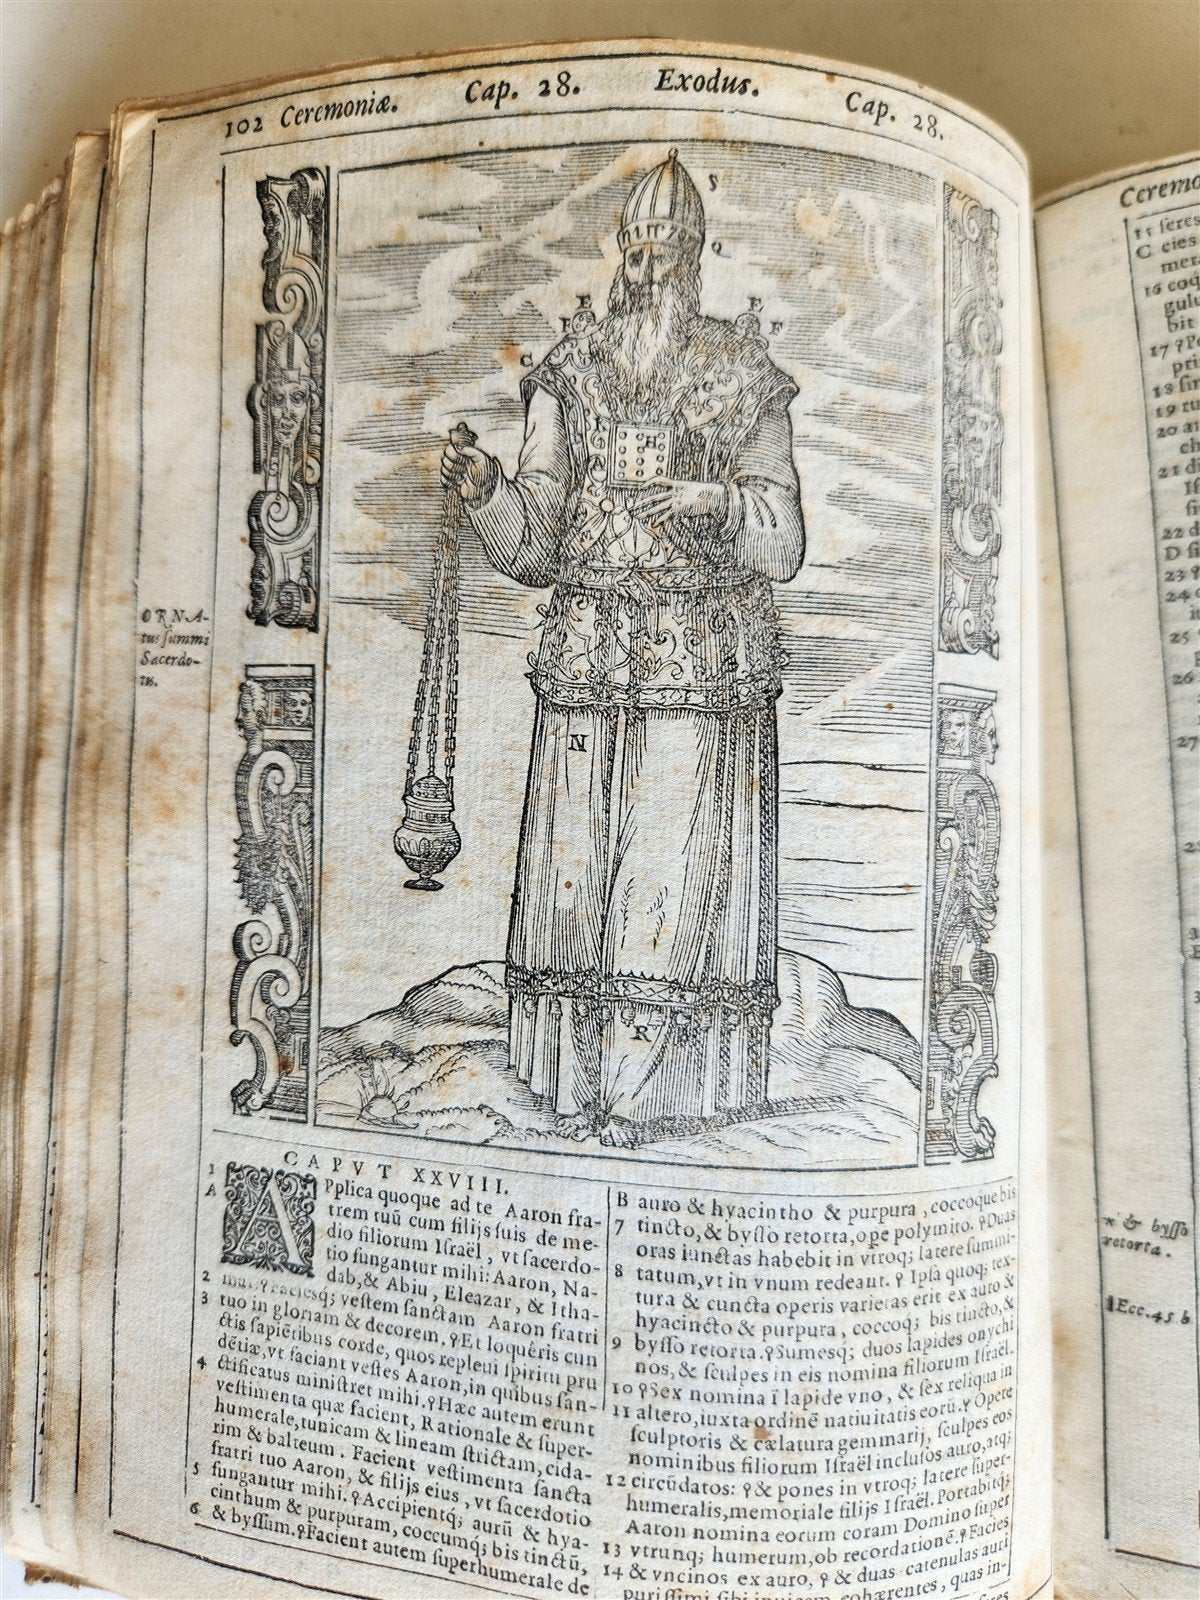 102 Ceremoniæ. Cap. 28. Exodus. Cap. 28.
S
Q
E E
F F
C
G
K H
A
N
R
ORNA-
tus ſummi
Sacerdo-
tis.
CAPVT XXVIII.
1 APplica quoque ad te Aaron fra-
A trem tuũ cum filijs ſuis de me-
dio filiorum Iſraël, vt ſacerdo-
tio fungantur mihi: Aaron, Na-
dab, & Abiu, Eleazar, & Itha-
2 mar. ꝯ Facieſq; veſtem ſanctam Aaron fratri
3 tuo in gloriam & decorem. ꝯ Et loquêris cun
ctis ſapiẽtibus corde, quos repleui ſpiritu pru
dẽtiæ, vt faciant veſtes Aaron, in quibus ſan-
4 ctificatus miniſtret mihi. ꝯ Hæc autem erunt
veſtimenta quæ facient, Rationale & ſuper-
humerale, tunicam & lineam ſtrictam, cida-
rim & balteum. Facient veſtimenta ſancta
fratri tuo Aaron, & filijs eius, vt ſacerdotio
5 fungantur mihi. ꝯ Accipientq; aurũ & hya-
cinthum & purpuram, coccumq; bis tinctũ,
6 & byſſum. ꝯ Facient autem ſuperhumerale de
B auro & hyacintho & purpura, coccoque bis
7 tincto, & byſſo retorta, opere polymito. ꝯ Duas
oras iunctas habebit in vtroq; latere ſummi-
8 tatum, vt in vnum redeant. ꝯ Ipſa quoq; tex-
tura & cuncta operis varietas erit ex auro &
hyacincto & purpura, coccoq; bis tincto, &
9 byſſo retorta. ꝯ Sumesq; duos lapides onychi
nos, & ſculpes in eis nomina filiorum Iſraël.
10 ꝯ Sex nomina ĩ lapide vno, & ſex reliqua in
11 altero, iuxta ordinẽ natiuitatis eorũ. ꝯ Opere
ſculptoris & cælatura gemmarij, ſculpes eos
nominibus filiorum Iſraël incluſos auro, atq;
12 circũdatos: ꝯ & pones in vtroq; latere ſuper-
humeralis, memoriale filijs Iſraël. Portabitq;
Aaron nomina eorum coram Domino ſuper
13 vtrunq; humerum, ob recordationẽ. ꝯ Facies
14 & vncinos ex auro, ꝯ & duas catenulas auri
puriſſimi ſibi inuicem cohærentes, quas in-
Ceremo
15 ſeres
C cies
mera
16 coq
gulu
bit
17 ꝯ Po
pri
18 ſm
19 ru
20 au
ch
21 di
Iſ
22 a
D ſi
23 ꝯ
24
25
26
27
& byſſo
retorta.
Ecc. 45. b